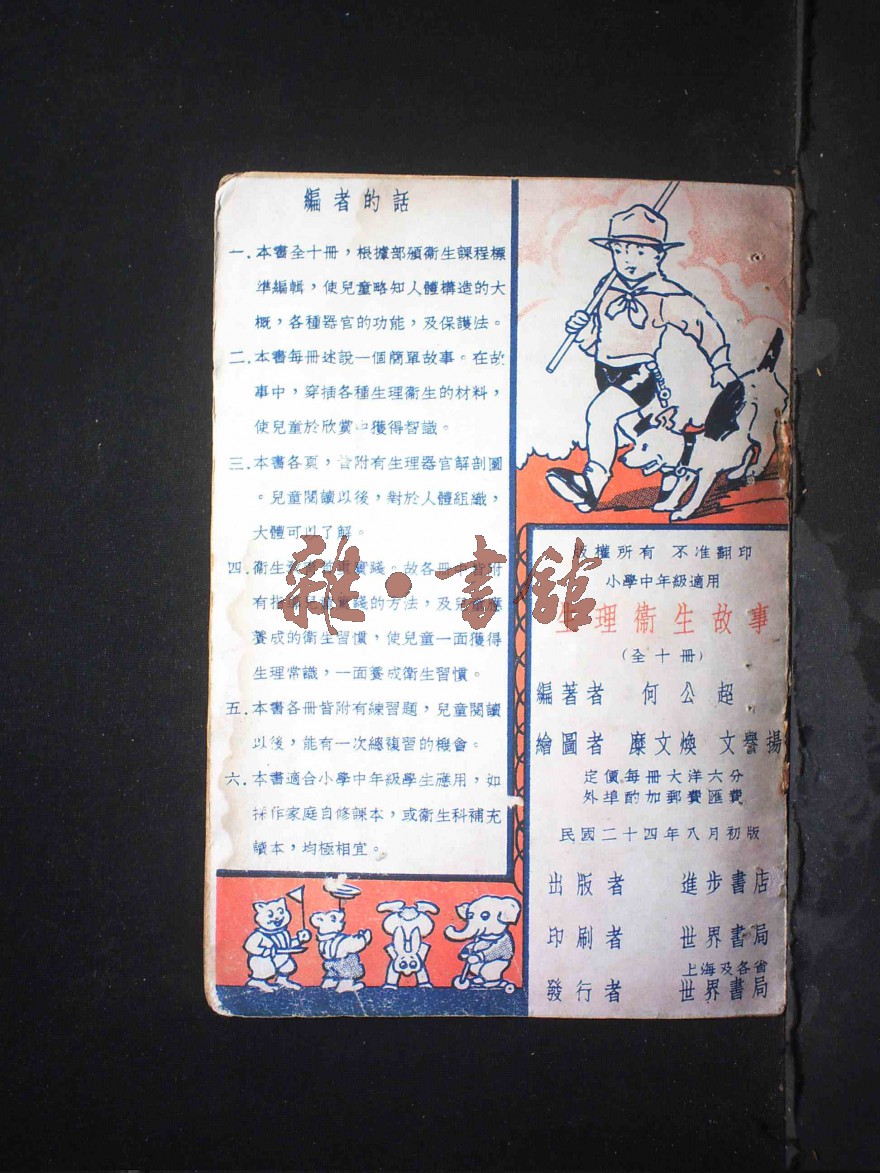 編者的話
一．本書全十冊，根據部頒衛生課程標
準編輯，使兒童略知人體構造的大
概，各種器官的功能，及保護法。
二．本書每冊述說一個簡單故事。在故
事中，穿插各種生理衛生的材料，
使兒童於欣賞中獲得智識。
三．本書各頁，皆附有生理器官解剖圖
。兒童閱讀以後，對於人體組織，
大體可以了解。
四．衛生 實踐。故各冊中皆附
有指導兒童實踐的方法，及兒童應
養成的衛生習慣，使兒童一面獲得
生理常識，一面養成衛生習慣。
五．本書各冊皆附有練習題，兒童閱讀
以後，能有一次總復習的機會。
六．本書適合小學中年級學生應用，如
採作家庭自修課本，或衛生科補充
讀本，均極相宜。
版權所有 不准翻印
小學中年級適用
生理衛生故事
(全十冊)
編著者 何公超
繪圖者 糜文煥 文譽揚
定價每冊大洋六分
外埠酌加郵費匯費
民國二十四年八月初版
出版者 進步書店
印刷者 世界書局
上海及各省
發行者 世界書局
雜·書館